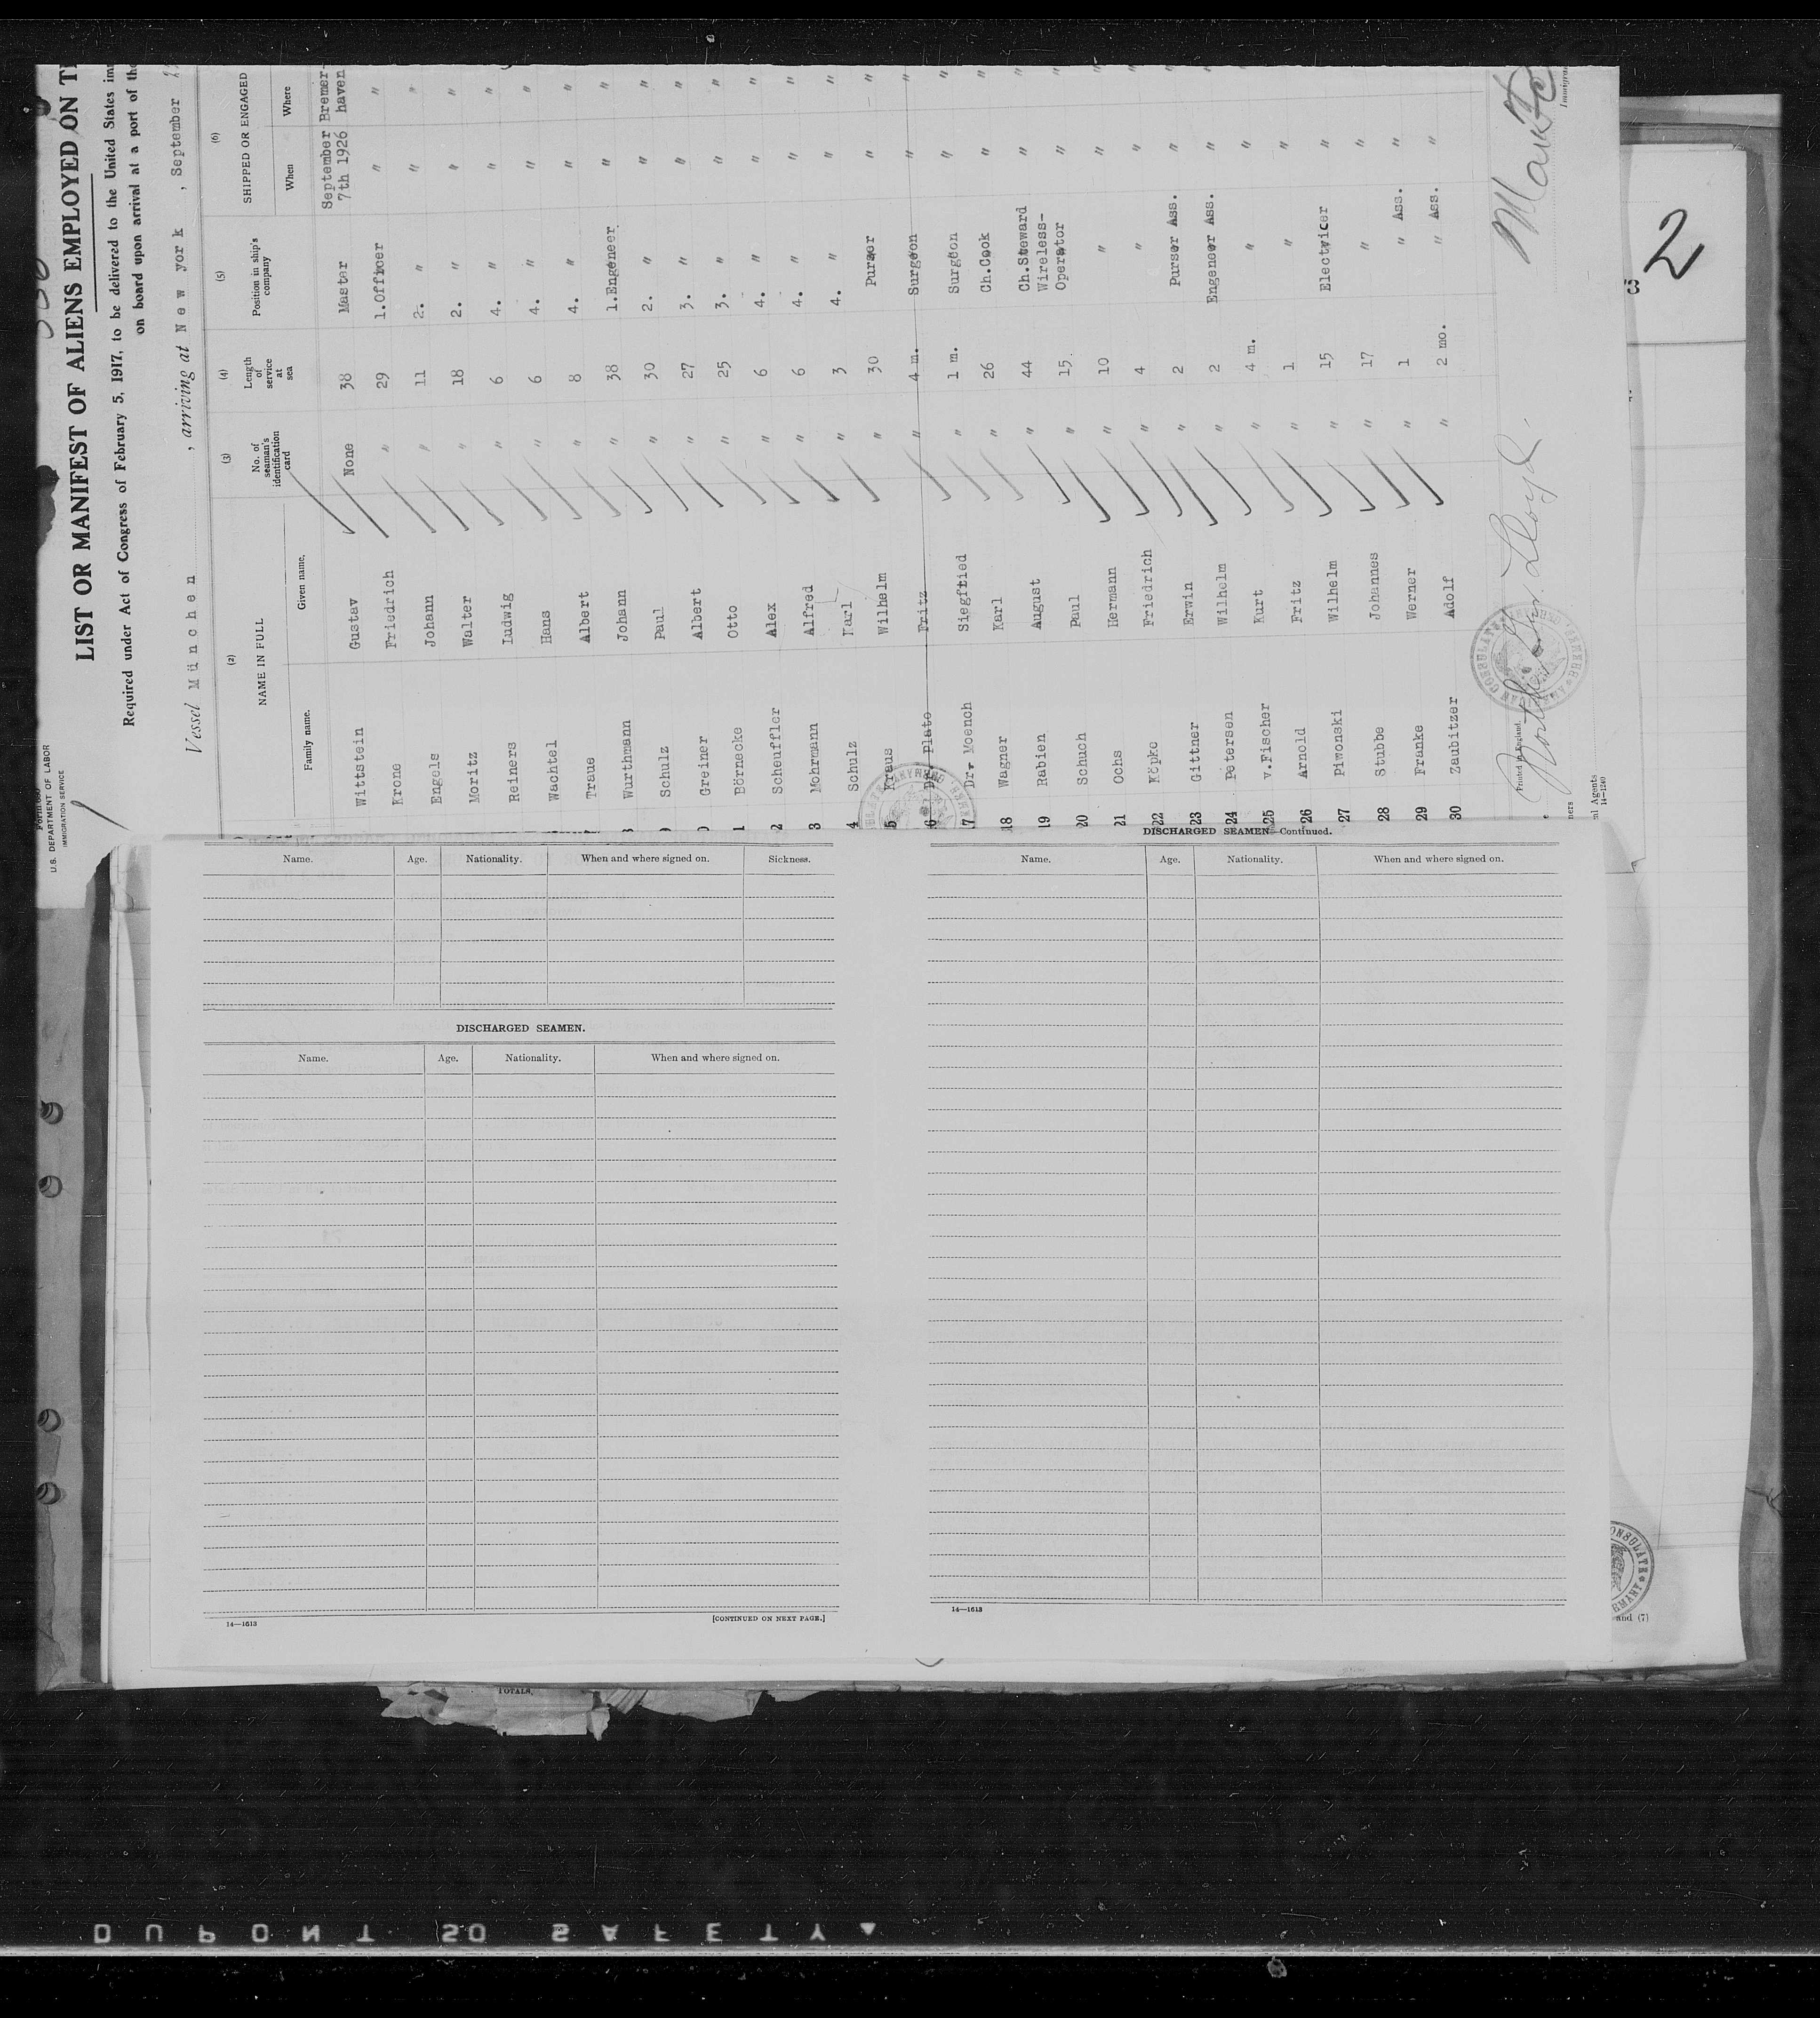 Form 680
U.S. DEPARTMENT OF LABOR
IMMIGRATION SERVICE
LIST OR MANIFEST OF ALIENS EMPLOYED ON
Required under Act of Congress of February 5, 1917, to be delivered to the United States
on board upon arrival at a port of the
Vessel München , arriving at New york , September
(2) (3) (4) (5) (6)
NAME IN FULL No. of seaman's identification card Length of service at sea Position in ship's company SHIPPED OR ENGAGED
Family name. Given name. When Where
Wittstein Gustav None 38 Master September 7th 1926 Bremer-haven
Krone Friedrich " 29 1.Officer " "
Engels Johann " 11 2. " " "
Moritz Walter " 18 2. " " "
Reiners Ludwig " 6 4. " " "
Wachtel Hans " 6 4. " " "
Traue Albert " 8 4. " " "
8 Wurthmann Johann " 38 1.Engeneer " "
9 Schulz Paul " 30 2. " " "
0 Greiner Albert " 27 3. " " "
1 Börnecke Otto " 25 3. " " "
2 Scheuffler Alex " 6 4. " " "
3 Mohrmann Alfred " 6 4. " " "
4 Schulz Karl " 3 4. " " "
5 Kraus Wilhelm " 30 Purser " "
6 Dr. Plate Fritz " 4 m. Surgeon " "
7 Dr. Moench Siegfried " 1 m. Surgeon " "
18 Wagner Karl " 26 Ch.Cook " "
19 Rabien August " 44 Ch.Steward " "
20 Schuch Paul " 15 Wireless-Operator " "
21 Ochs Hermann " 10 " " "
22 Köpke Friedrich " 4 " " "
23 Gittner Erwin " 2 Purser Ass. " "
24 Petersen Wilhelm " 2 Engeneer Ass. " "
25 v.Fischer Kurt " 4 m. " "
26 Arnold Fritz " 1 " "
27 Piwonski Wilhelm " 15 Electricer "
28 Stubbe Johannes " 17 " "
29 Franke Werner " 1 " Ass. "
30 Zaubitzer Adolf " 2 mo. " Ass. "
Printed in England.
Lloyd
Master
Immigrant
ners
Agents
14—1240
2
DISCHARGED SEAMEN—Continued.
Name. Age. Nationality. When and where signed on. Sickness.
Name. Age. Nationality. When and where signed on.
DISCHARGED SEAMEN.
Name. Age. Nationality. When and where signed on.
14—1613
[CONTINUED ON NEXT PAGE.]
14—1613
and (7)
TOTALS.
DUPONT SO SAFETY